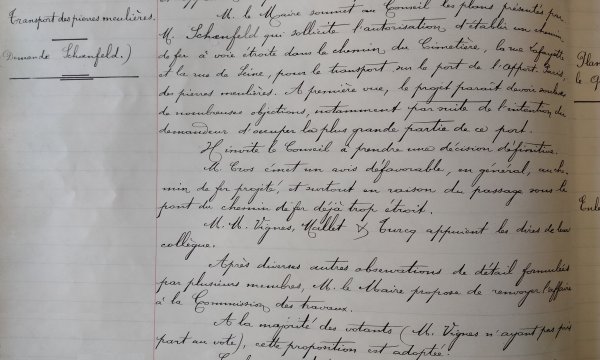 Transport des pierres meulières.
Demande Schœnfeld.)
M. le Maire soumet au Conseil les plans présentés par
M. Schœnfeld qui sollicite l'autorisation d'établir un chemin
de fer à voie étroite dans le chemin du Cimetière, la rue Lafayette
et la rue de Seine, pour le transport, sur le port de l'Apport-Paris,
des pierres meulières. A première vue, le projet parait devoir soulever
de nombreuses objections, notamment par suite de l'intention du
demandeur d'occuper la plus grande partie de ce port.
Il invite le Conseil à prendre une décision définitive.
M. Cros émet un avis défavorable, en général, au che-
min de fer projeté, et surtout en raison du passage sous le
pont du chemin de fer déjà trop étroit.
M. M. Vignes, Mallet & Turcq appuient les dires de leur
collègue.
Après diverses autres observations de détail formulées
par plusieurs membres, M. le Maire propose de renvoyer l'affaire
à la Commission des travaux.
A la majorité des votants (M. Vignes n'ayant pas pris
part au vote), cette proposition est adoptée.